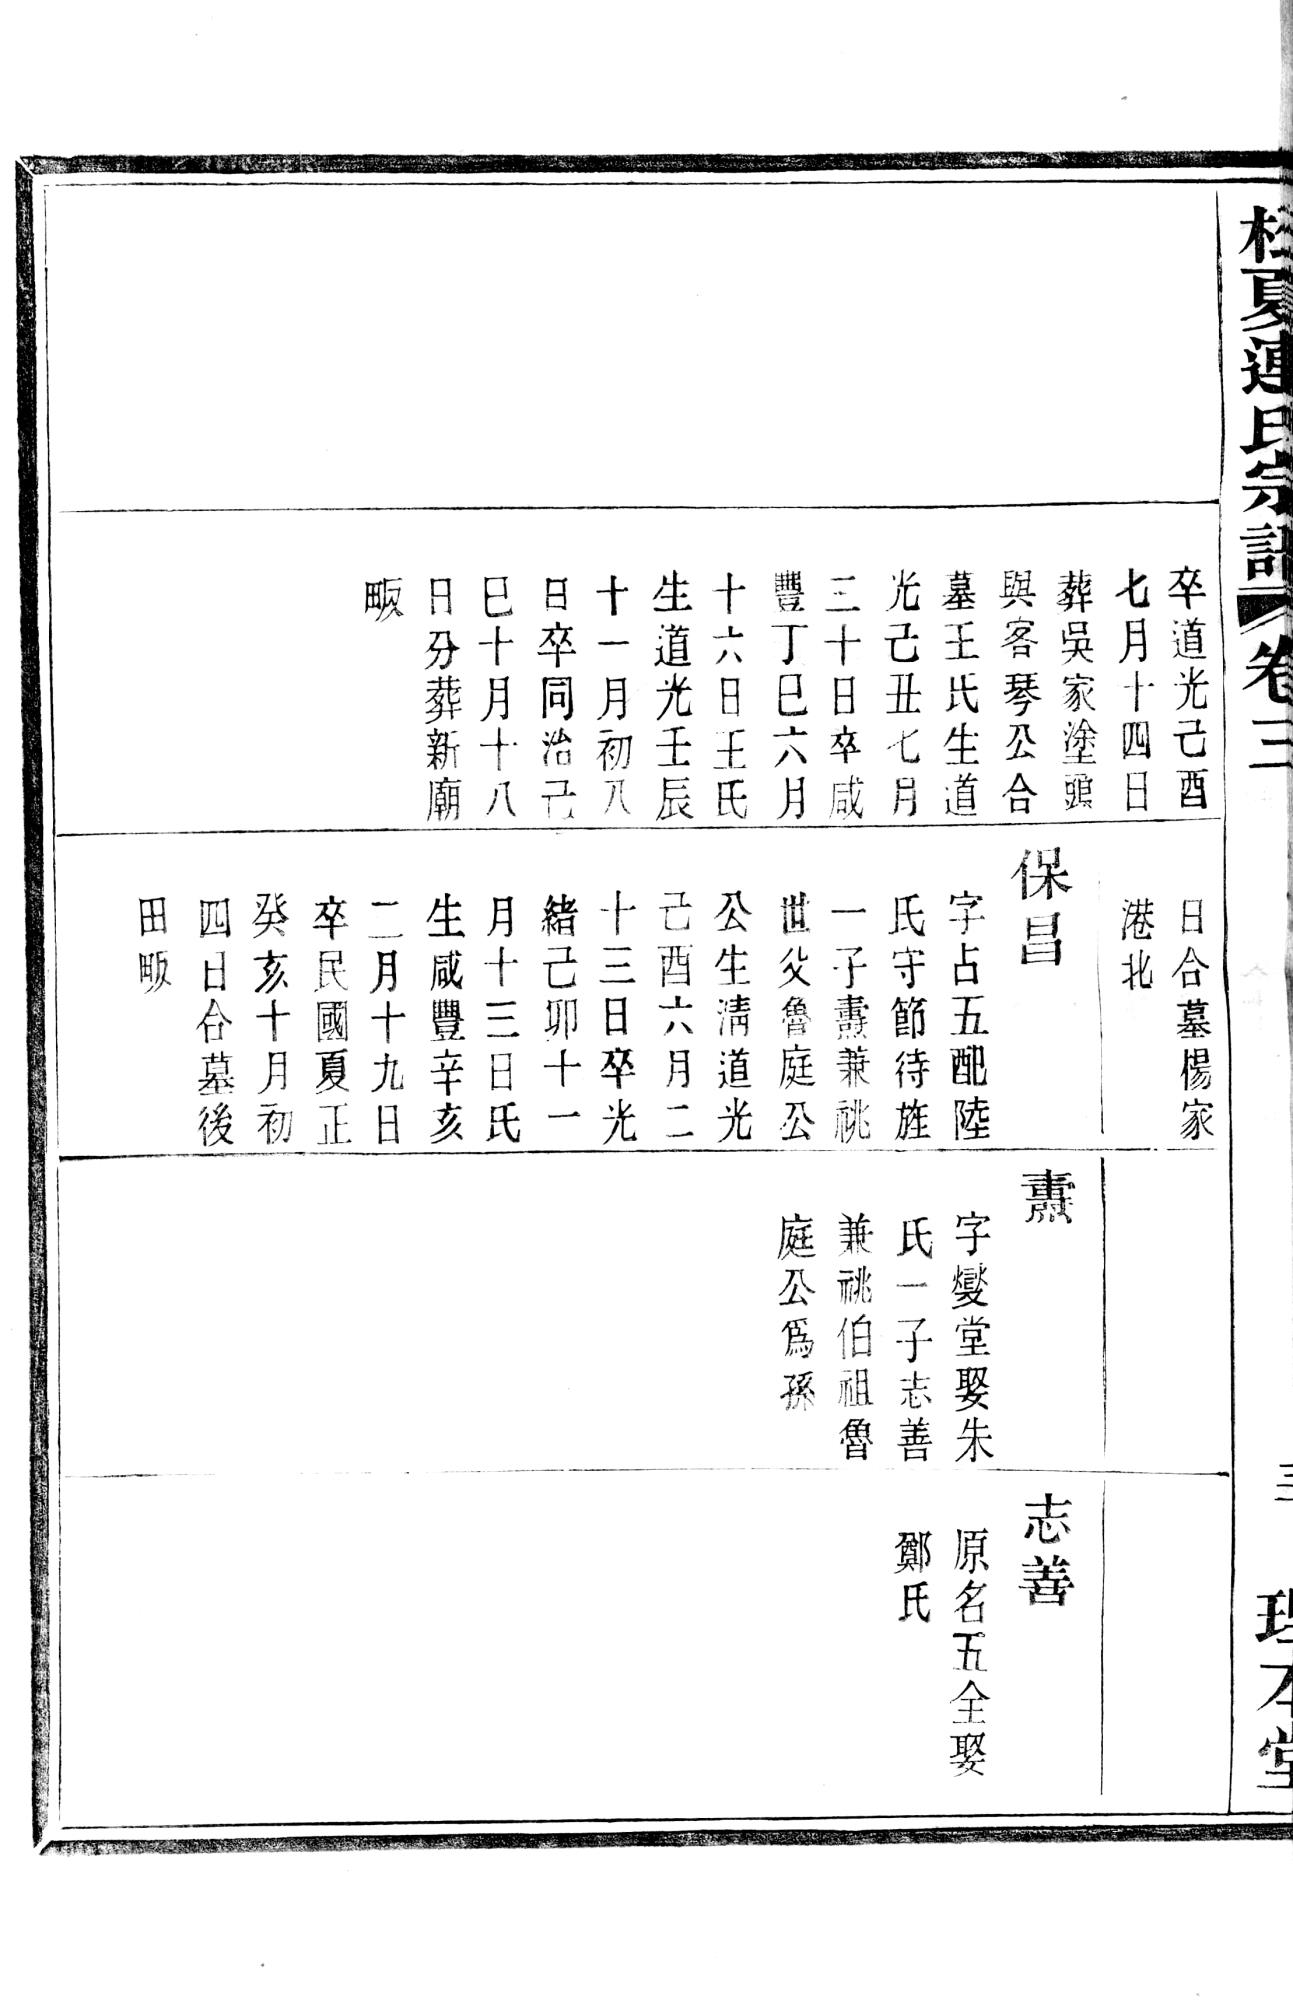 夏連氏宗譜
卷三
理本堂
卒道光己酉
七月十四日
葬吳家塗頭
與客琴公合
墓王氏生道
光己丑七月
三十日卒咸
豐丁巳六月
十六日王氏
生道光壬辰
十一月初八
日卒同治己
巳十月十八
日分葬新廟
畈
日合墓楊家
港北
保昌
字占五配陸
氏守節待旌
一子燾兼祧
世父魯庭公
公生淸道光
己酉六月二
十三日卒光
緒己卯十一
月十三日氏
生咸豐辛亥
二月十九日
卒民國夏正
癸亥十月初
四日合墓後
田畈
燾
字燮堂娶朱
氏一子志善
兼祧伯祖魯
庭公爲孫
志善
原名五全娶
鄭氏